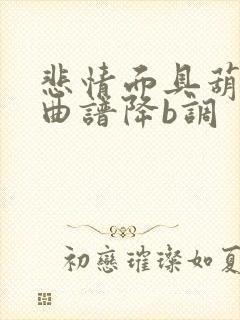 悲情而具葫
曲譜降b調
初戀璀璨如夏